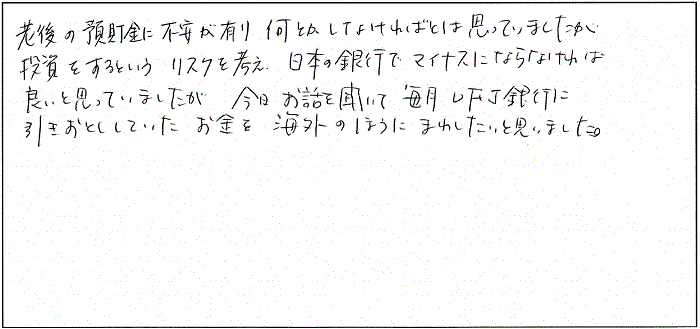 老後の預貯金に不安が有り 何とかしなければとは思っていましたが
投資をするという リスクを考え 日本の銀行で マイナスにならなければ
良いと思っていましたが 今日 お話を聞いて 毎月 UFJ銀行に
引きおとししていた お金を 海外のほうに まわしたいと思いました。